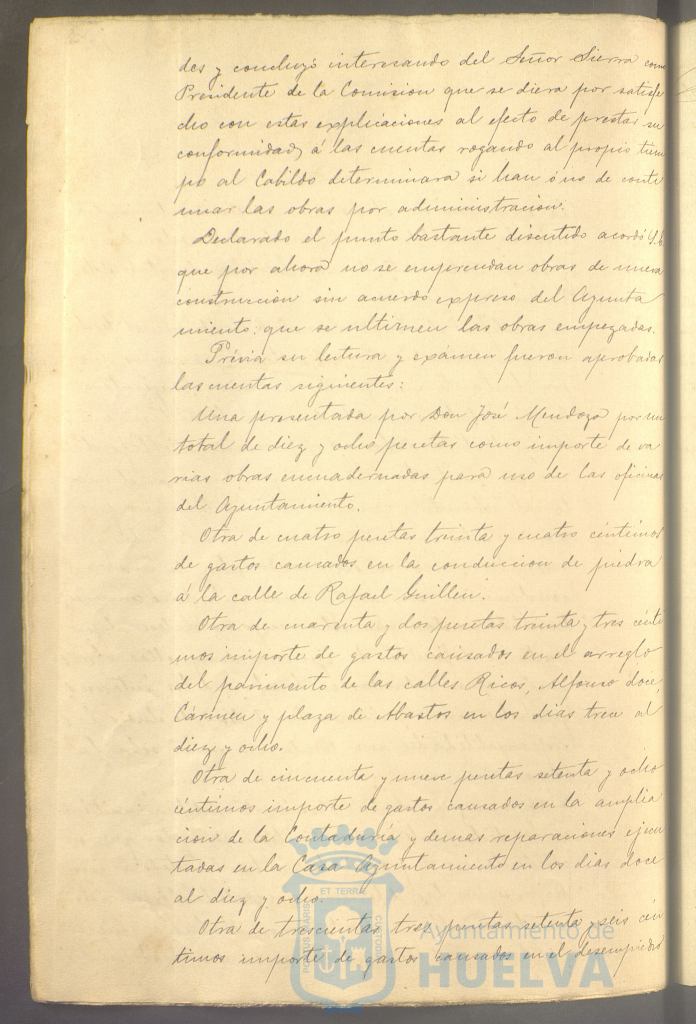 des y concluyó interesando del Señor Sierra como
Presidente de la Comision que se diera por satisfe
cho con estas explicaciones al efecto de prestar su
conformidad á las cuentas rogando al propio tiem
po al Cabildo determinara si han ó no de conti
nuar las obras por administracion.
Declarado el punto bastante discutido acordó S.E.
que por ahora no se emprendan obras de nueva
construccion sin acuerdo expreso del Ayunta
miento; que se ultimen las obras empezadas.
Prévia su lectura y exámen fueron aprobadas
las cuentas siguientes:
Una presentada por Don José Mendoza por un
total de diez y ocho pesetas como importe de va
rias obras encuadernadas para uso de las oficinas
del Ayuntamiento.
Otra de cuatro pesetas treinta y cuatro céntimos
de gastos causados en la conduccion de piedra
á la calle de Rafael Guillen.
Otra de cuarenta y dos pesetas treinta y tres cénti
mos importe de gastos causados en el arreglo
del pavimento de las calles Ricos, Alfonso doce,
Cármen y plaza de Abastos en los dias trece al
diez y ocho.
Otra de cincuenta y nueve pesetas setenta y ocho
céntimos importe de gastos causados en la amplia
cion de la Contaduría y demas reparaciones ejecu
tadas en la Casa Ayuntamiento en los dias doce
al diez y ocho.
Otra de trescientas tres pesetas setenta y seis cén
timos importe de gastos causados en el desempiedro
PORTUS MARIS
ET TERRE
CUSTODIA
Ayuntamiento de
HUELVA